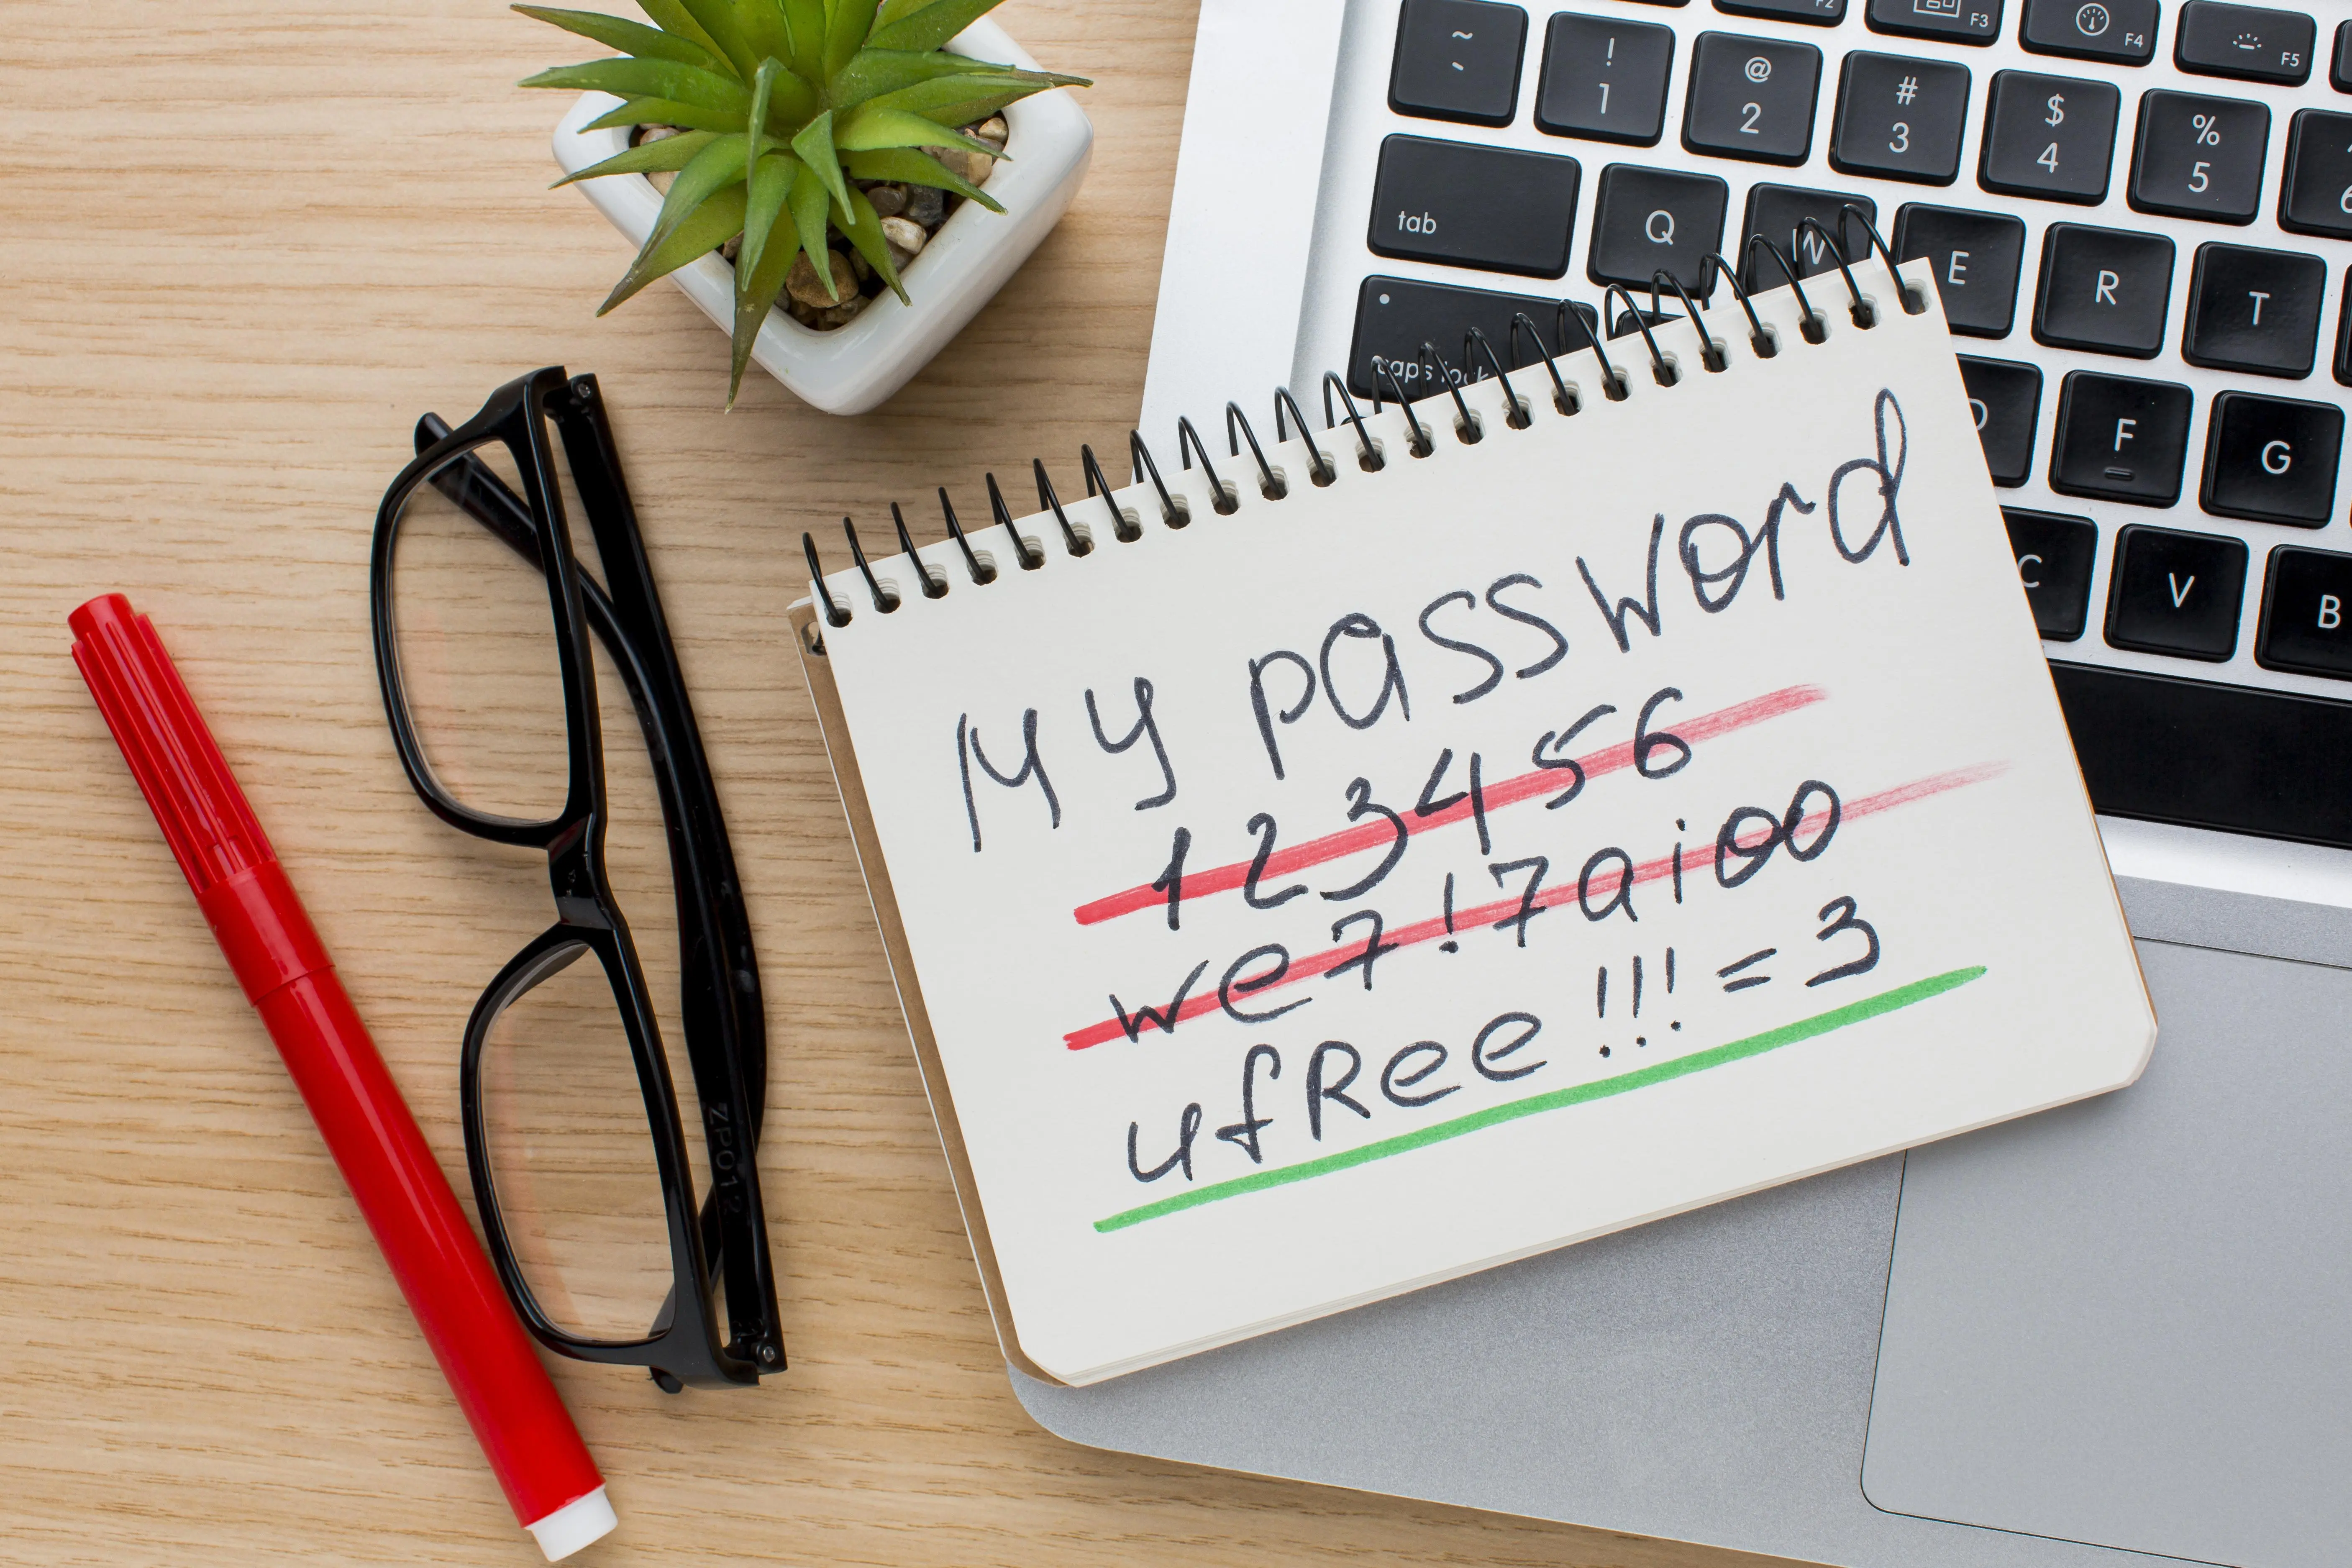 ~ `
! 1
@ 2
# 3
$ 4
% 5
F2
F3
F4
F5
tab
Q
W
E
R
T
caps lock
D
F
G
C
V
B
My password
123456
we7!7aioo
ufRee!!!=3
ZP012